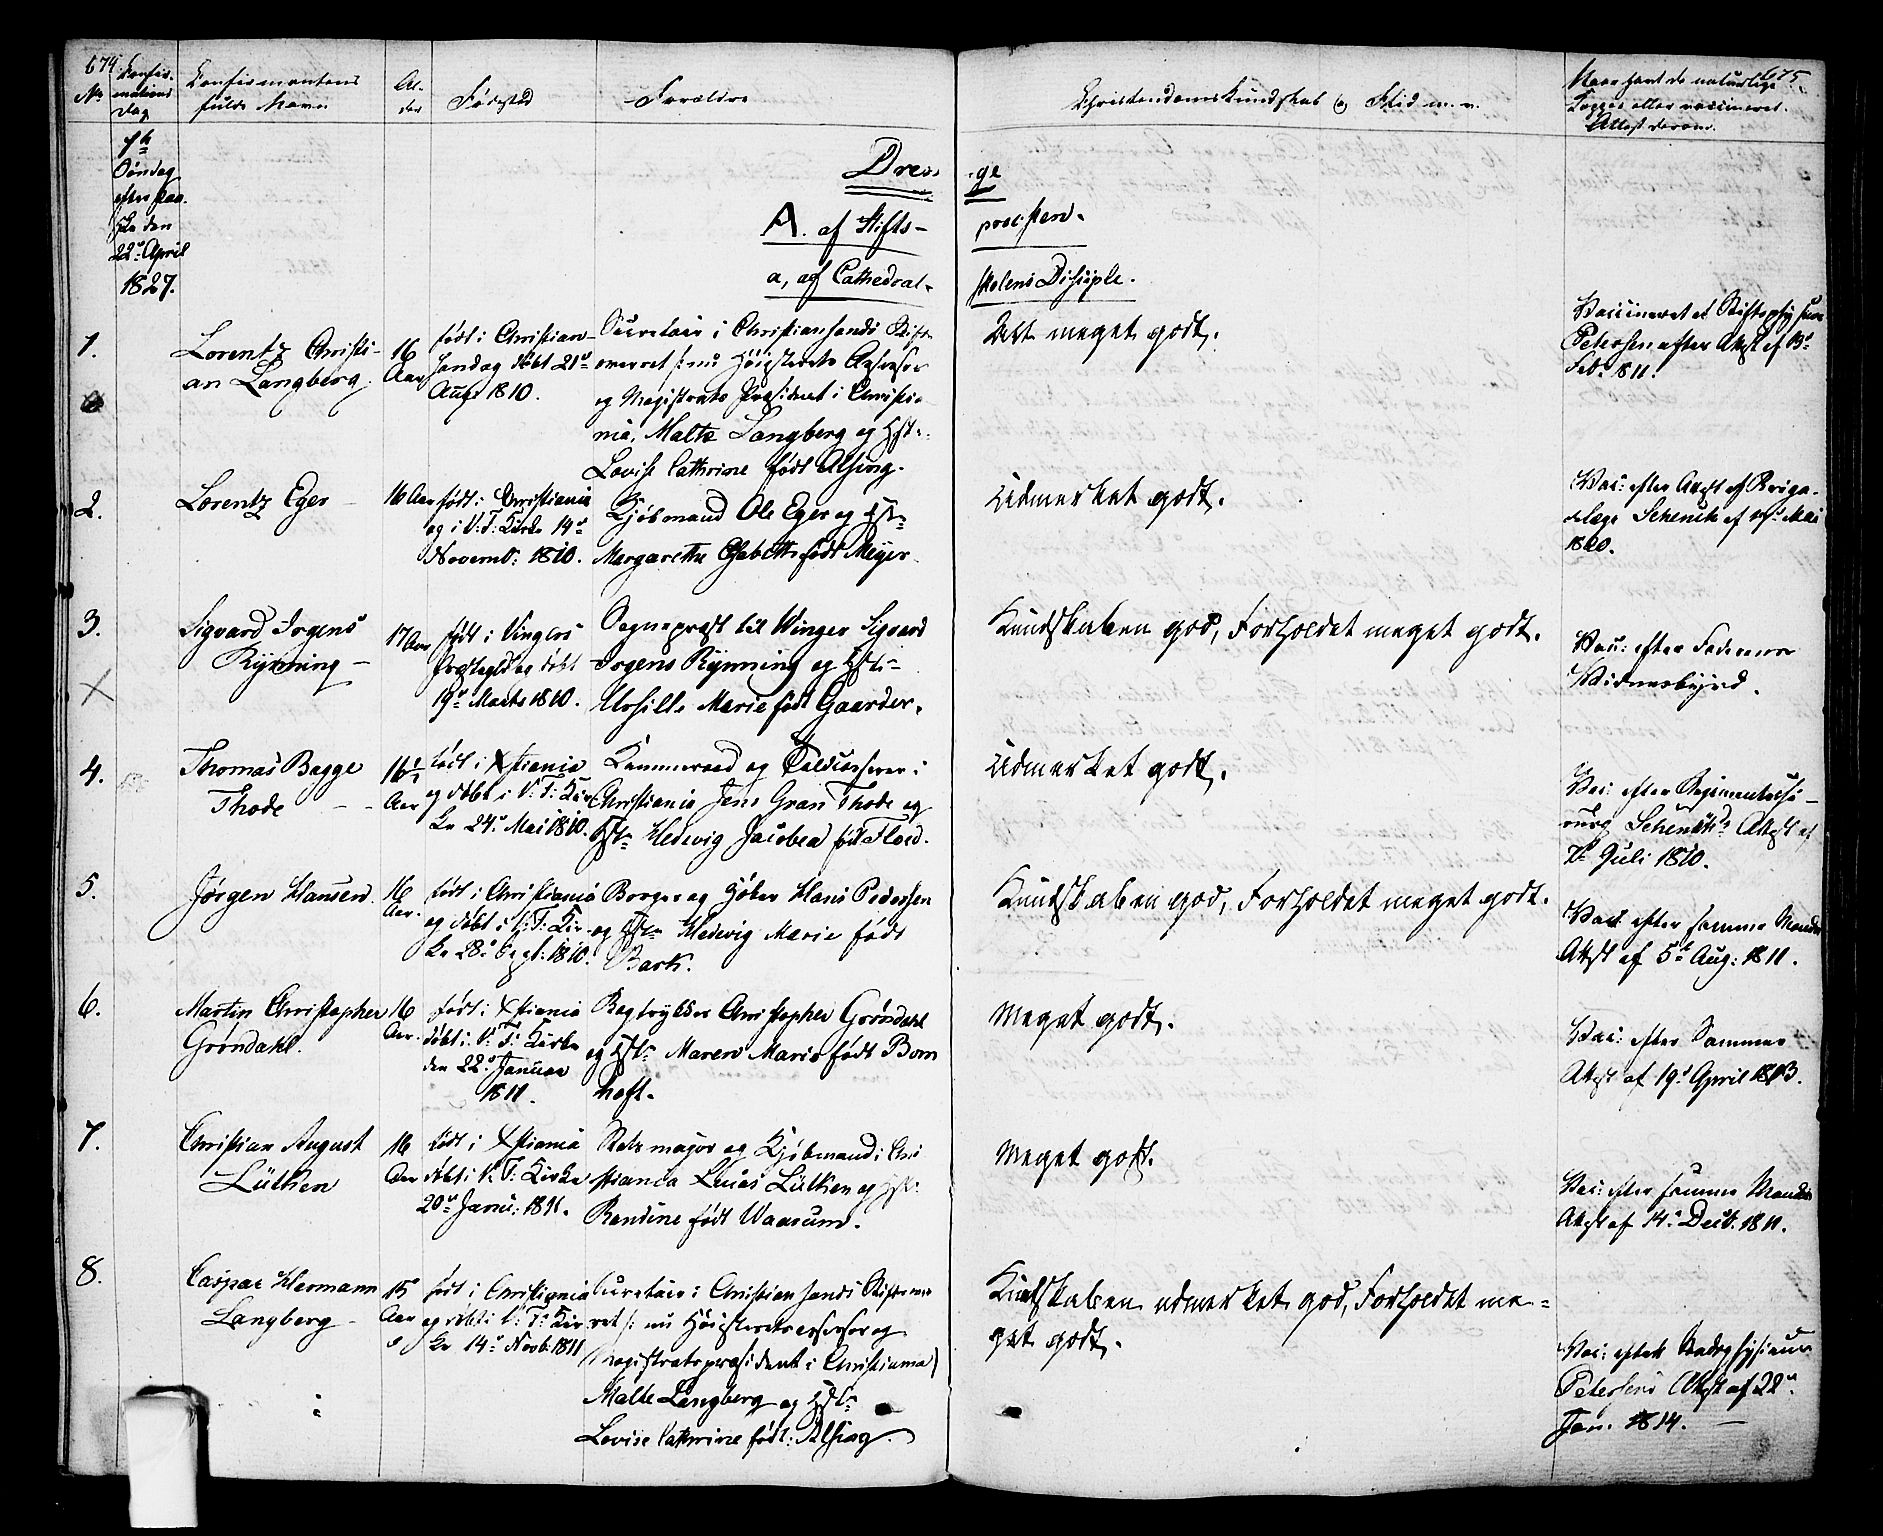 674
No
Confir-
mations
Dag
Confirmantens
fulde Navn
Al-
der
Fødested
Forældre
Christendoms Kundskab og Flid m. v.
675
Naar havt de naturlige
Kopper eller vaccineret.
Attest derom.
1ste
Søndag
efter Paa-
ske den
22de April
1827.
Dren-ge
A. af Stifts-provsten.
a, af Cathedral-skolens Disciple.
1.
Lorentz Christi-
an Langberg.
16
Aar
født i Christian-
sand og døbt 21de
Augs 1810.
Secretair i Christiansands Stift
overret /: nu Høiesterets Assessor
og Magistrats Præsident i Christia-
nia, Malte Langberg og Hst.
Lovise Cathrine født Alsing.
Alt meget godt.
Vaccineret af Stiftsphysicus
Petersen efter Attest af 13de
Feb. 1811.
2.
Lorentz Eger
16 Aar
født i Christiania
og i V: F: Kirke 14de
Novemb: 1810.
Kjøbmand Ole Eger og Hst.
Margarethe Elsabeth født Meyer
Udmerket godt.
Vac: efter Attest af Briga-
delæge Schenck af Mai
3.
Sigvard Irgens
Rynning
17 Aar
født i Vingers
Præstegield og døbt
19de Marts 1810.
Sognepræst til Winger Sigvard
Irgens Rynning og Hst.
Ursille Marie født Gaarder.
Kundskaben god, Forholdet meget godt.
Vac: efter Faderens
Vidnesbyrd.
4.
Thomas Bagge
Thode
16½
Aar
født i Xstiania
og døbt i V: F: Kir
ke 24de Mai 1810.
Kammerraad og i
Christiania Jens Gran Thode og
Hst. Hedevig Jacobea født Flood.
Udmerket godt.
Vac: efter Regimentschi-
rurg Schencks Attest af
7de Juli 1810.
5.
Jørgen Hansen.
16
Aar.
født i Christiania
og døbt i V: F: Kir-
ke 28de Sept: 1810.
Borger og Hans Pedersen
og Hst. Hedevig Marie født
Bark.
Kundskaben god, Forholdet meget godt.
Vac: efter samme Mands
Attest af 5te Aug: 1811.
6.
Martin Christopher
Grøndahl.
16
Aar.
født i Xstiania
døbt i V: F: Kirke
den 22de Januar
1811.
Bogtrykker Christopher Grøndahl
og Hst. Maren Marie født Born
hoft.
Meget godt.
Vac: efter Sammes
Attest af 19de April 1813.
7.
Christian August
Lütken
16
Aar
født i Xstiania
døbt i V: F: Kirke
20de Janu: 1811.
major og Kjøbmand i Chri
stiania Lucas Lütken og Hst.
Randine født Waarum.
Meget godt.
Vac: efter samme Mands
Attest af 14de Decb. 1811.
8.
Caspar Hermann
Langberg
15
Aar
født i Christiania
og døbt i V: F: Kir
ke 14de Novb: 1811
Secretair i Christiansands Stiftsover
ret /: nu Høiesteretsassessor og
Magistratspræsident i Christiania)
Malte Langberg og Hst.
Lovise Cathrine født: Alsing.
Kundskaben udmerket god, Forholdet me-
get godt.
Vac: efter Stadsphysicus
Petersens Attest af 22de
Jan. 1814.